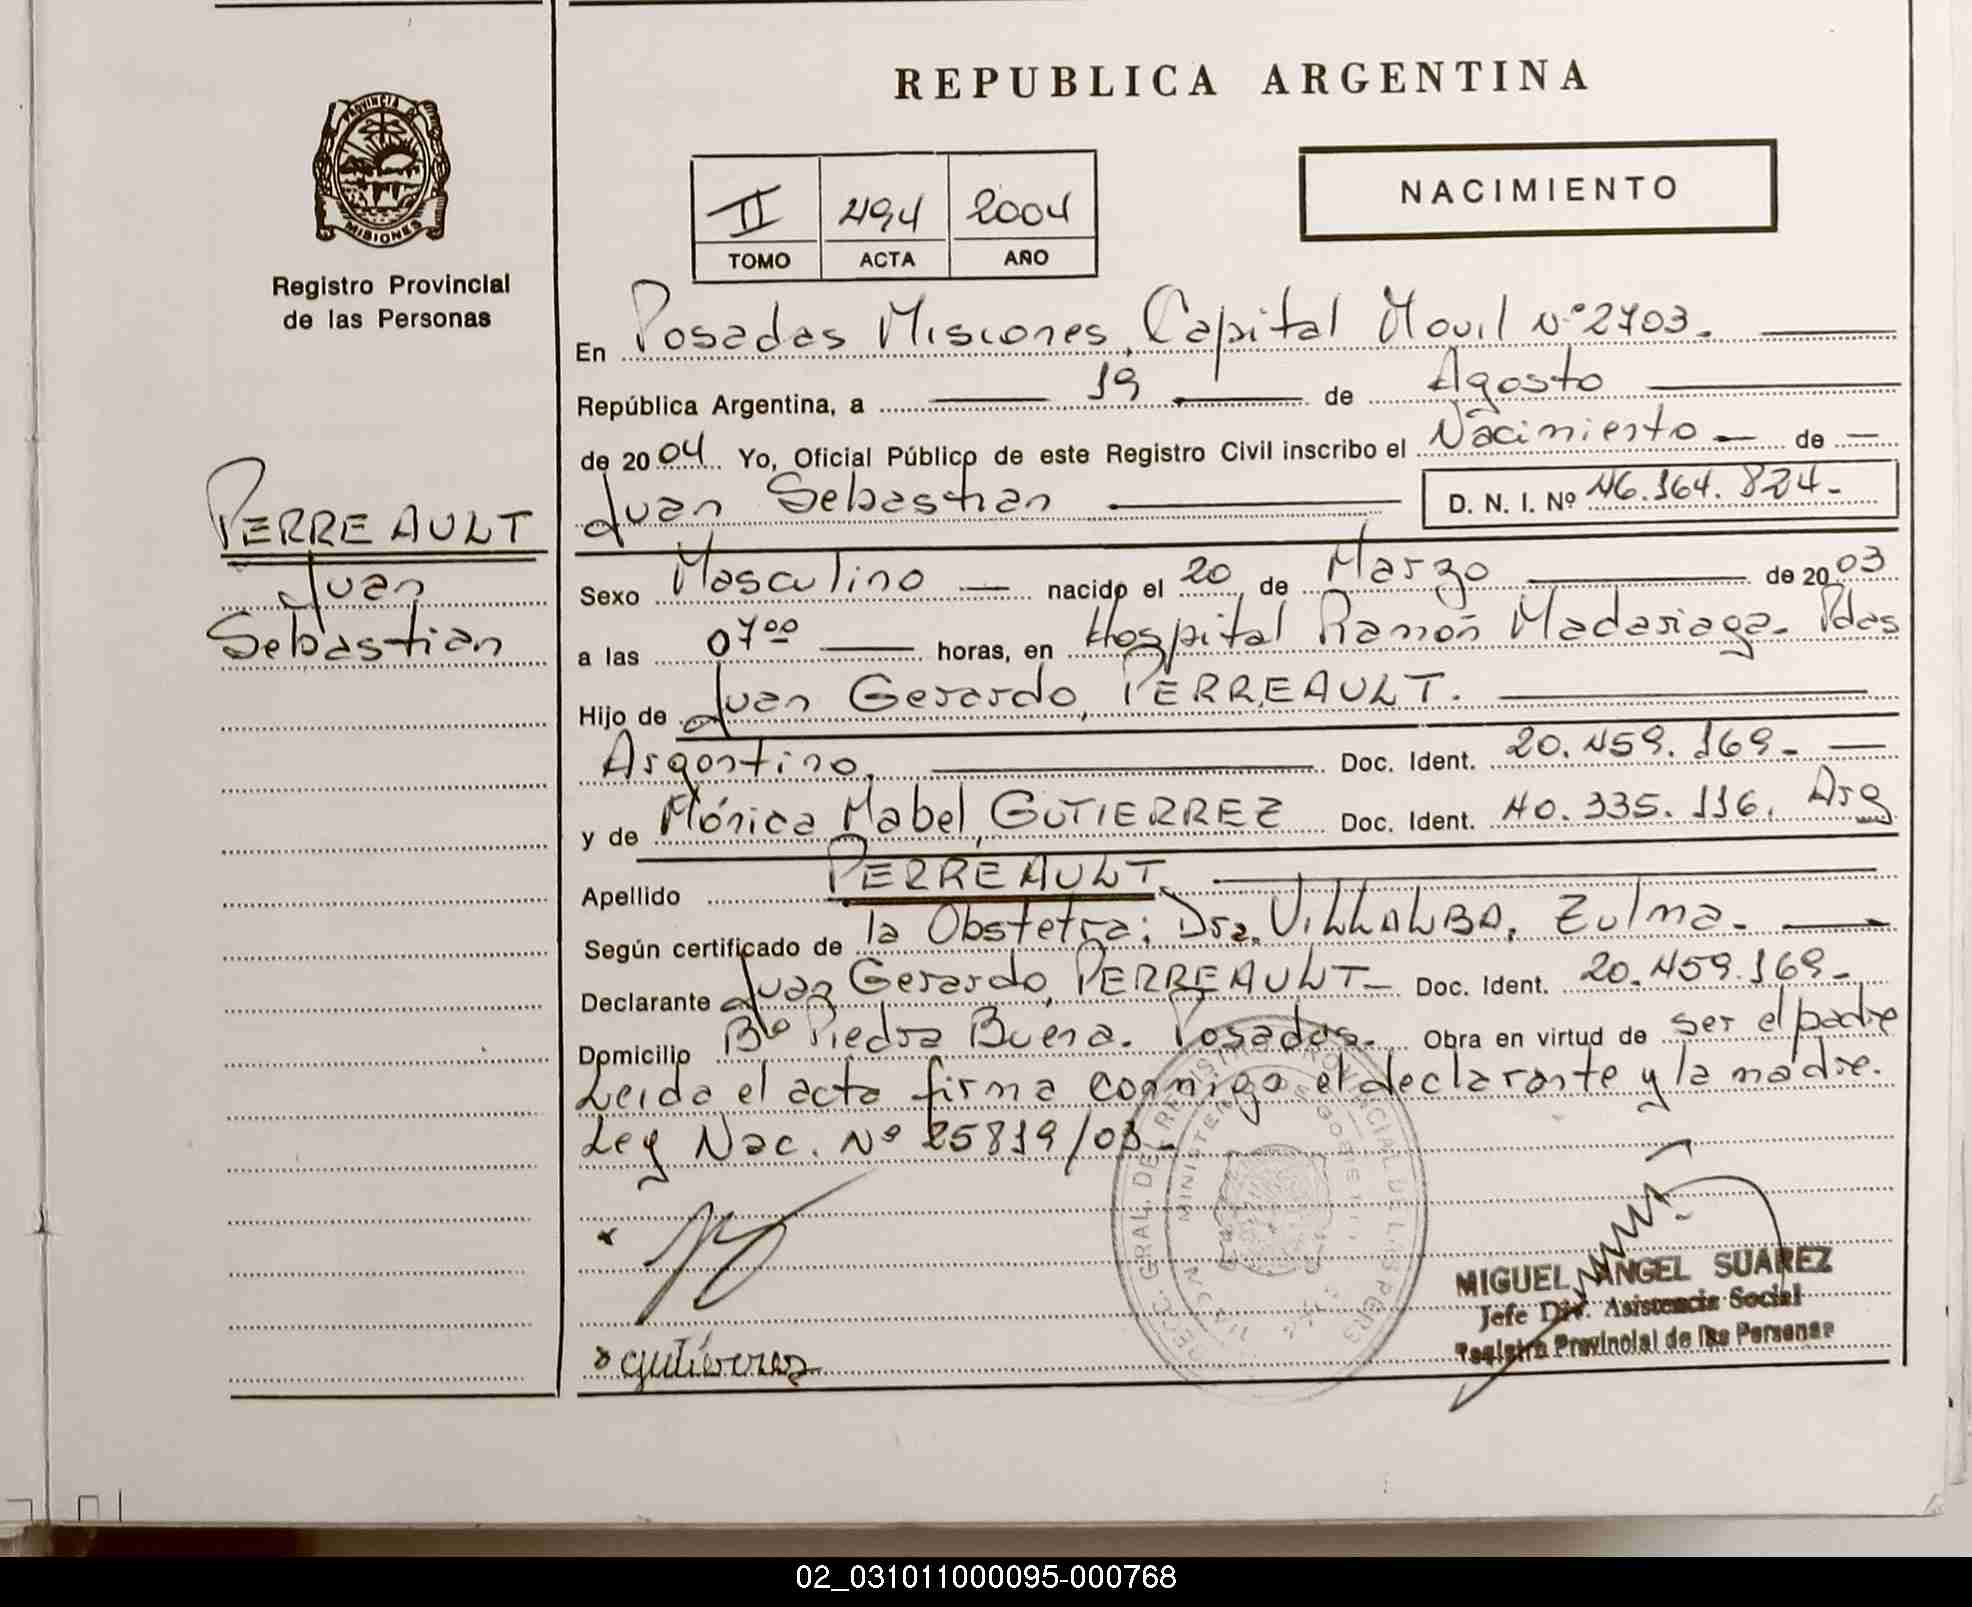 PROVINCIA DE
MISIONES
Registro Provincial
de las Personas
PERREAULT
Juan
Sebastian
REPUBLICA ARGENTINA
II 494 2004
TOMO ACTA AÑO
NACIMIENTO
En Posadas Misiones, Capital Movil Nº 2703.
República Argentina, a 19 de Agosto
de 2004 Yo, Oficial Público de este Registro Civil inscribo el Nacimiento de
Juan Sebastian D. N. I. Nº 46.164.824.
Sexo Masculino nacido el 20 de Marzo de 2003
a las 07 00 horas, en Hospital Ramón Madariaga. Pdas
Hijo de Juan Gerardo, PERREAULT.
Argentino, Doc. Ident. 20.459.169.
y de Mónica Mabel, GUTIERREZ Doc. Ident. 40.335.116. Arg
Apellido PERREAULT
Según certificado de la Obstetra: Dra. VILLALBA, Zulma.
Declarante Juan Gerardo, PERREAULT Doc. Ident. 20.459.169.
Domicilio Bº Piedra Buena. Posadas. Obra en virtud de ser el padre
Leida el acta firma conmigo el declarante y la madre.
Ley Nac. Nº 25819/03.
MIGUEL ANGEL SUAREZ
Jefe Div. Asistencia Social
Registro Provincial de las Personas
x gutierrez
02_031011000095-000768